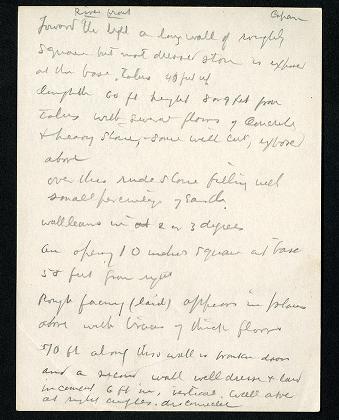 River front Copan
Toward the left a long wall of roughly
square but not dressed stone is exposed
at the base, takes 40 feet of
length 60 ft height 8 or 9 feet from
takes with several floors of concrete
& heavy stone, some well cut, exposed
above
over this rude stone filling with
small percentage of sand.
wall leans in at 2 or 3 degrees
an opening 10 inches square at base
50 feet from right
Rough facing (laid) appears in places
above with traces of thick floors
50 ft along this wall is broken down
and a second wall well dressed & laid
in cement 6 ft in, vertical, well above
at right angles, disconnected